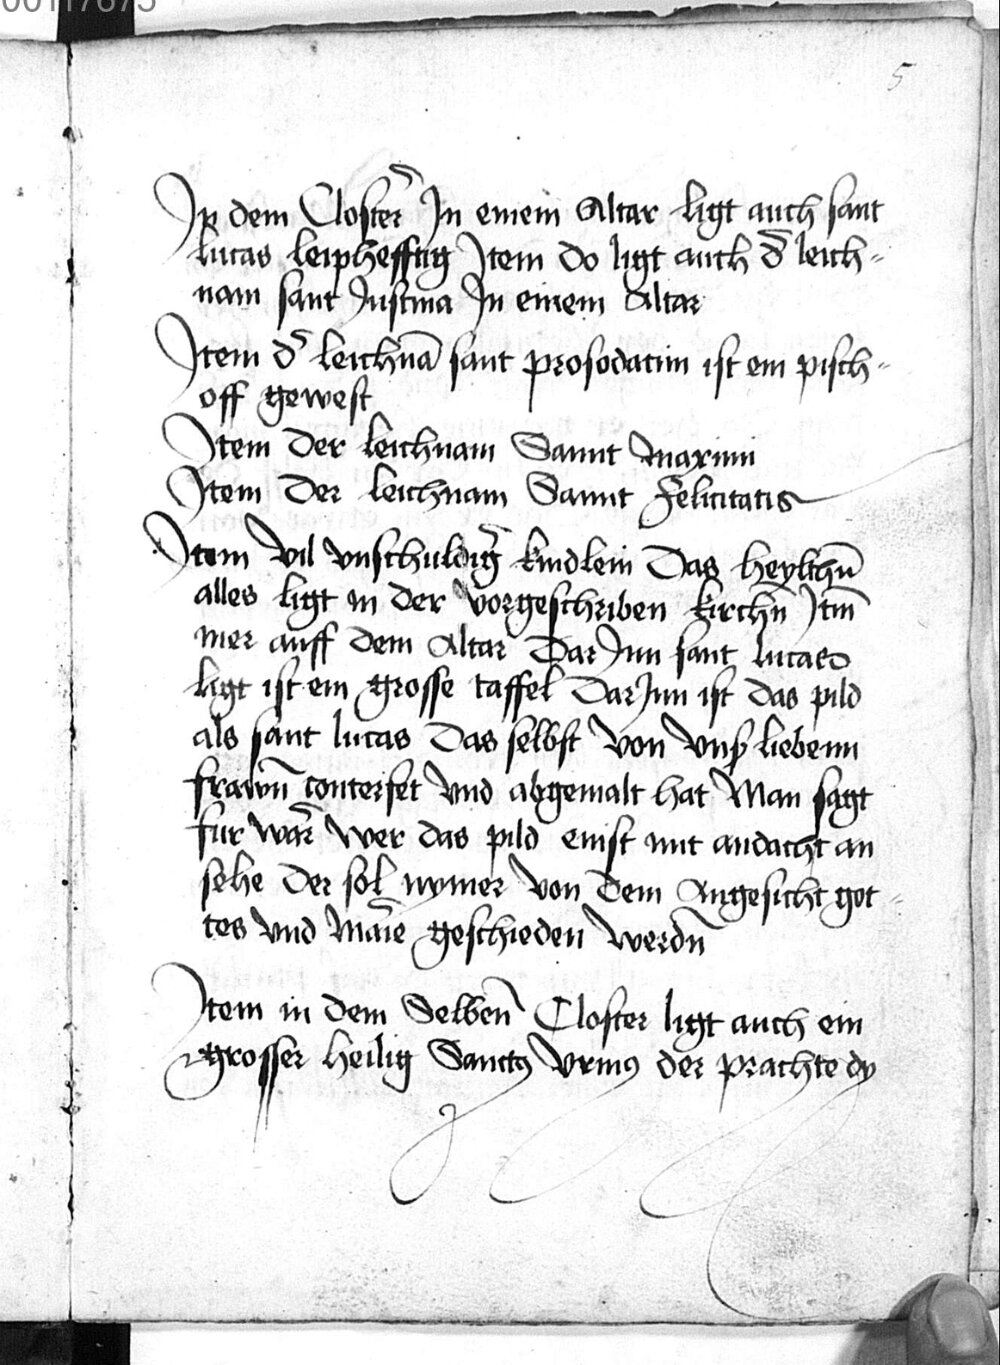 00117875
5
Jn dem Closter̃ Jn einem Altar ligt auch sant
lucas leiphefftig Jtem do ligt auch d̃ leich-
nam sant Justina Jn einem Altar
Jtem d̃ leichnã sant prosodatim ist ein pisch-
off gewest
Jtem der leichnam Sannt maximi
Jtem der leichnam Sannt Felicitatis
Jtem vil vnschuldig̃ kindlein Das heylthũ
alles ligt in der vorgeschriben kirchñ Jtm̃
mer auff dem Altar DarJnn sant lucas
ligt ist ein grosse taffel DarJnn ist das pild
als sant lucas Das selbst von vnsẜ liebenn
frawñ conterfet vnd abgemalt hat Man sagt
fur war̃ wer das pild einst mit andacht an
sehe der sol nymer von dem Angesicht got-
tes vnd Mar̃ie geschieden werdñ
Jtem in dem Selbeñ Closter ligt auch ein
grosser heilig Sanctꝰ vrniꝰ der prachte dy